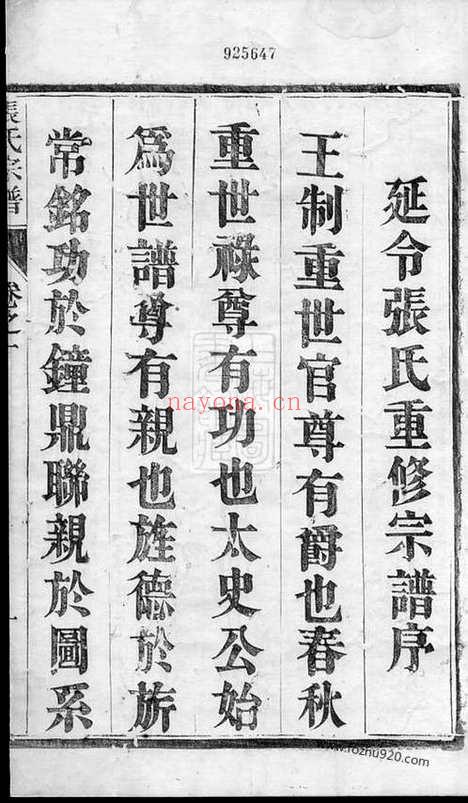 925647
延令張氏重修宗譜序
王制重世官尊有爵也春秋
重世祿尊有功也太史公始
爲世譜尊有親也旌德於旂
常銘功於鐘鼎聯親於圖系
張氏宗譜
卷之一
一
nayona.cn
www.rozhu920.com